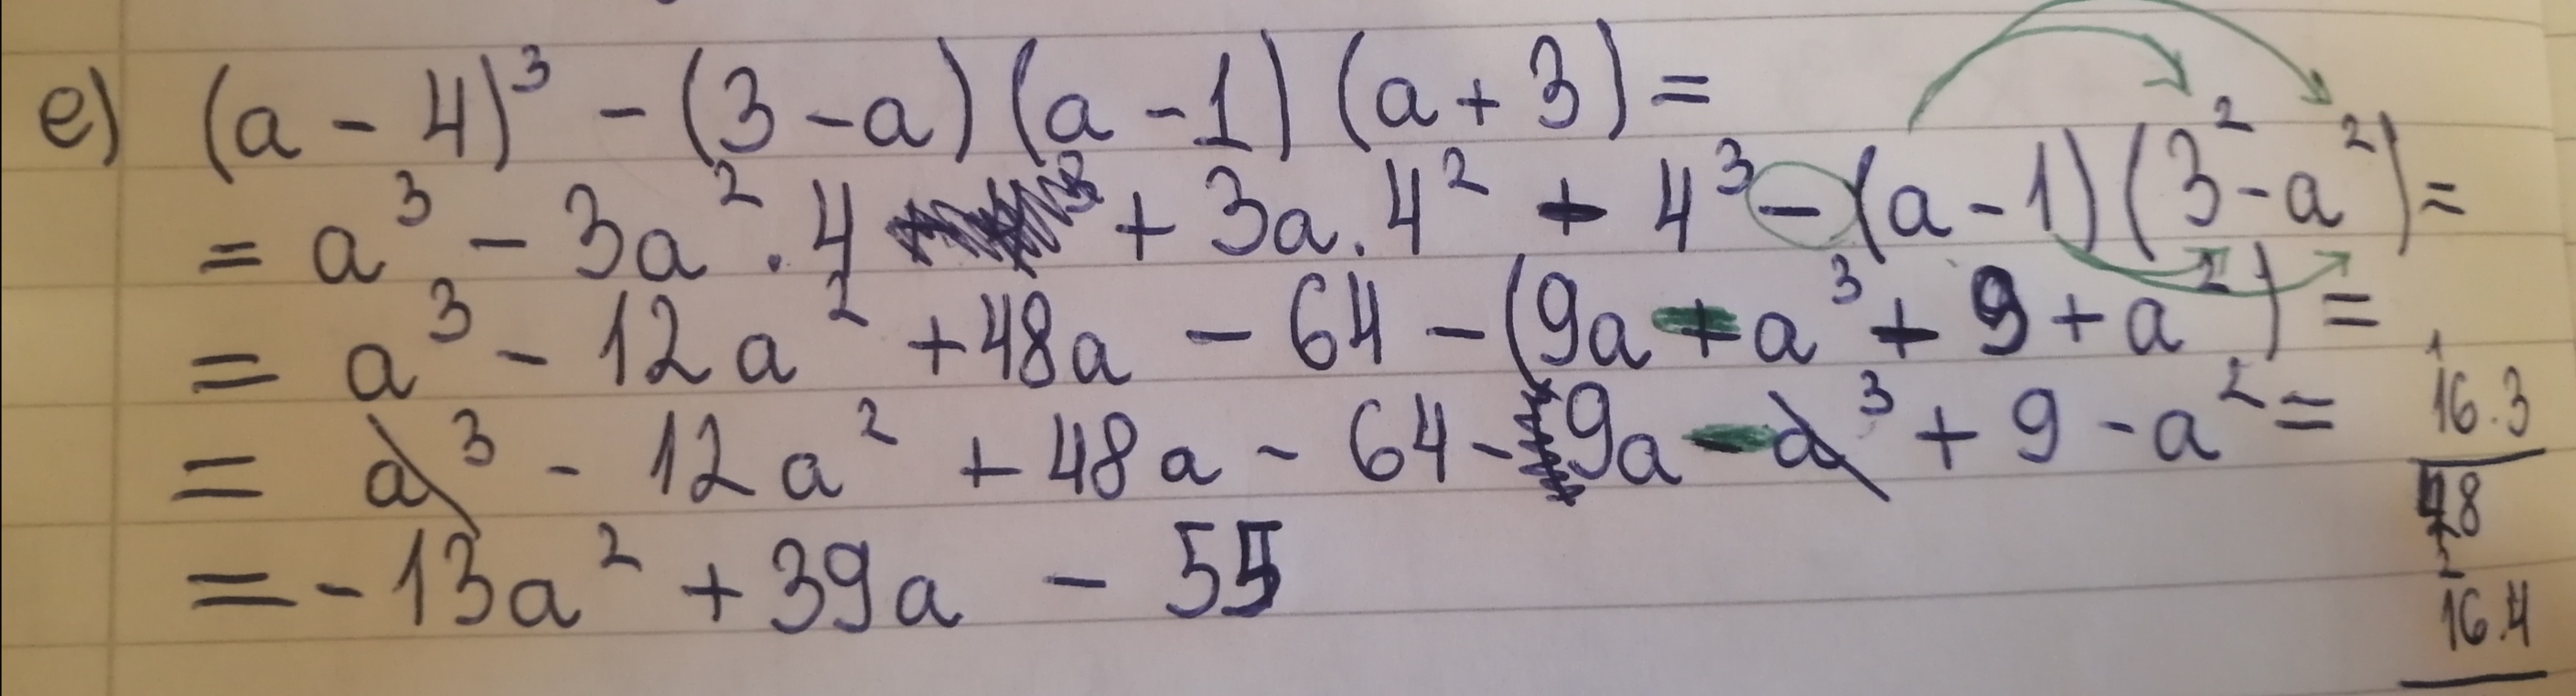 e) (a - 4)³ - (3 - a) (a - 1) (a + 3) =
= a³ - 3a² . 4 + 3a . 4² - 4³ - (a - 1) (3² - a²) =
= a³ - 12a² + 48a - 64 - (9a - a³ - 9 + a²) =
= a³ - 12a² + 48a - 64 - 9a - a³ + 9 - a² =
= - 13a² + 39a - 55
1
16.3
48
2
16.4